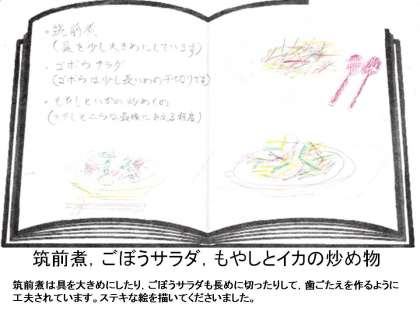 ・筑前煮
(具を少し大きめにしています)
・ゴボウサラダ
(ゴボウは少し長いめの千切りです)
・もやしといかの炒めもの
筑前煮，ごぼうサラダ，もやしとイカの炒め物
筑前煮は具を大きめにしたり，ごぼうサラダも長めに切ったりして，歯ごたえを作るように
工夫されています。ステキな絵を描いてくださいました。